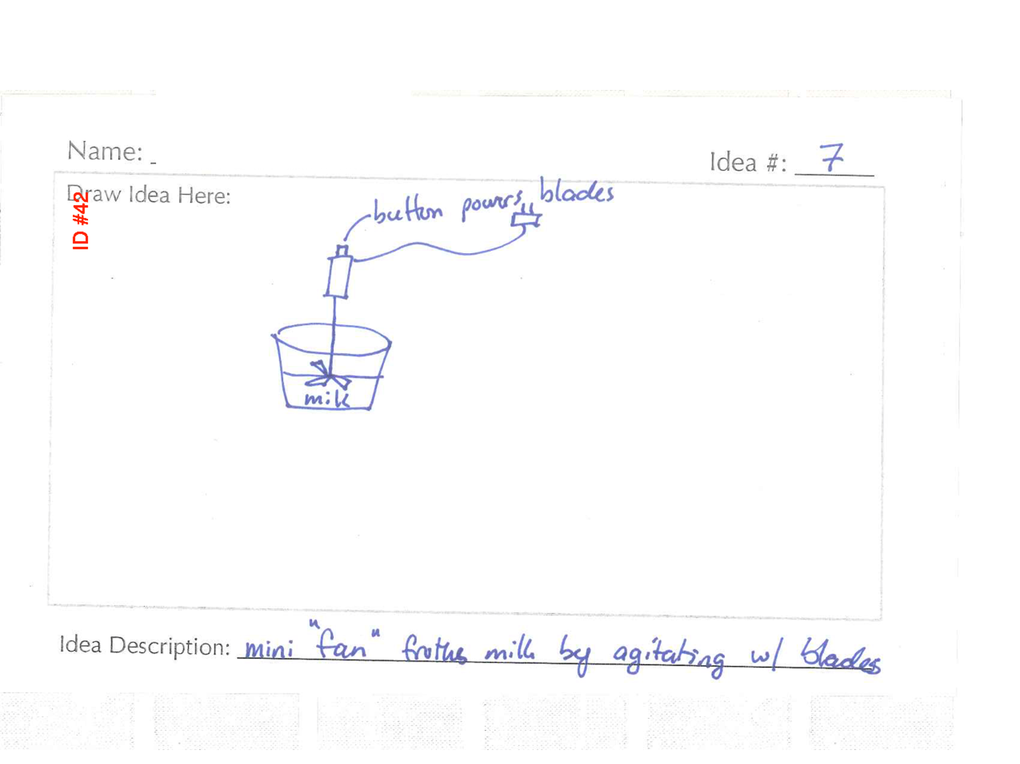 Name: -
Idea #: 7
Draw Idea Here:
ID #42
button powers blades
milk
Idea Description: mini "fan" froths milk by agitating w/ blades